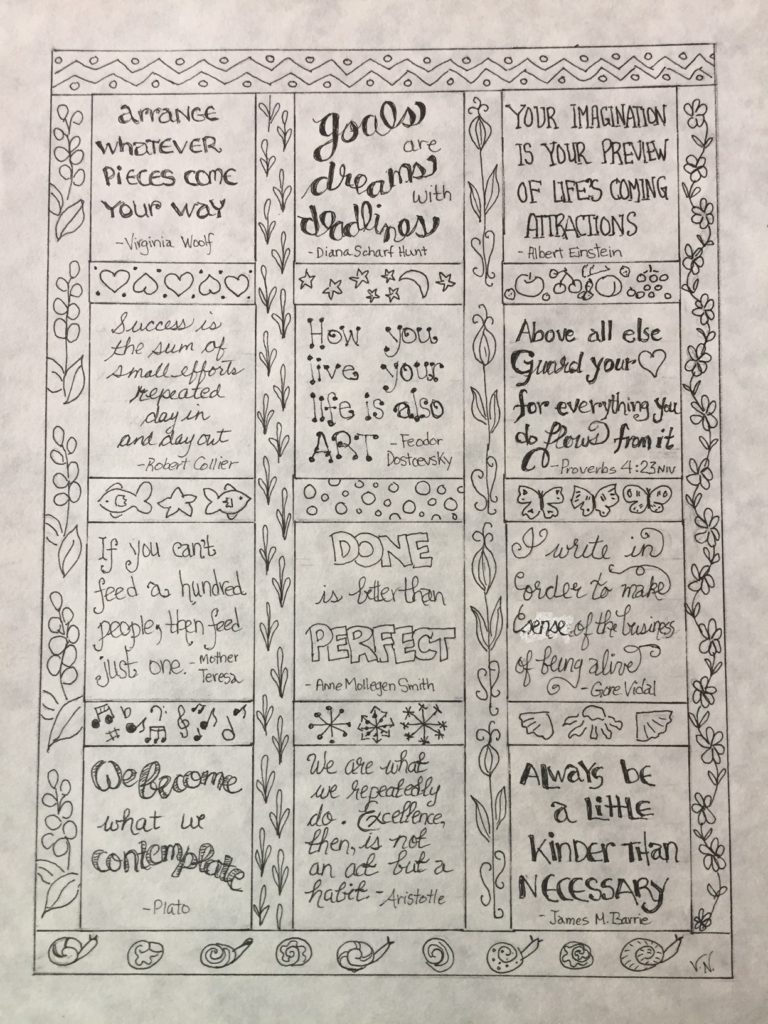 arrange
whatever
pieces come
your way
-Virginia Woolf
goals
are
dreams
with
deadlines
-Diana Scharf Hunt
YOUR IMAGINATION
IS YOUR PREVIEW
OF LIFE'S COMING
ATTRACTIONS
-Albert Einstein
Success is
the sum of
small efforts
repeated
day in
and day out
-Robert Collier
How you
live your
life is also
ART -Feodor
Dostoevsky
Above all else
Guard your
for everything you
do flows from it
-Proverbs 4:23 NIV
If you can't
feed a hundred
people, then feed
just one. -Mother
Teresa
DONE
is better than
PERFECT
-Anne Mollegen Smith
I write in
order to make
sense of the business
of being alive
-Gore Vidal
We become
what we
contemplate
-Plato
We are what
we repeatedly
do. Excellence,
then, is not
an act but a
habit. -Aristotle
Always be
a little
kinder than
NECESSARY
-James M. Barrie
V.N.